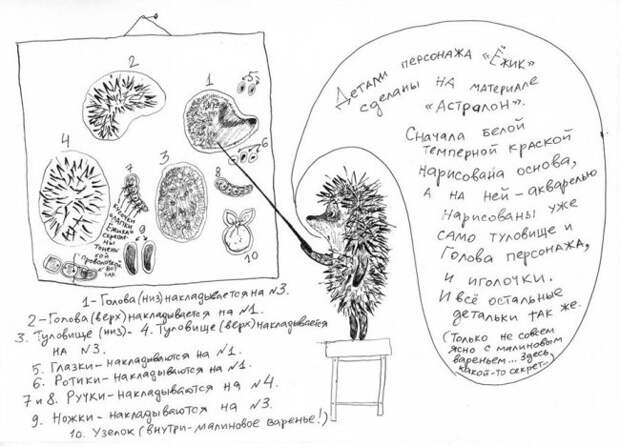 2
1
5
6
4
7
3
8
9
10
Детали персонажа «Ёжик»
сделаны на материале
«Астралон».
Сначала белой
темперной краской
нарисована основа,
а на ней - акварелью
нарисованы уже
само туловище и
голова персонажа,
и иголочки.
И всё остальные
детальки так же.
(Только не совсем
ясно с малиновым
вареньем... Здесь
какой-то секрет...
лапки
Ёжика
скрепле-
ны
тонень-
кой
проволокой
1 - Голова (низ) накладывается на №3.
2 - Голова (верх) накладывается на №1.
3. Туловище (низ) - 4. Туловище (верх) накладывается
на №3.
5. Глазки - накладываются на №1.
6. Ротики - накладываются на №1.
7 и 8. Ручки - накладываются на №4.
9. Ножки - накладываются на №3.
10. Узелок (внутри - малиновое варенье!)